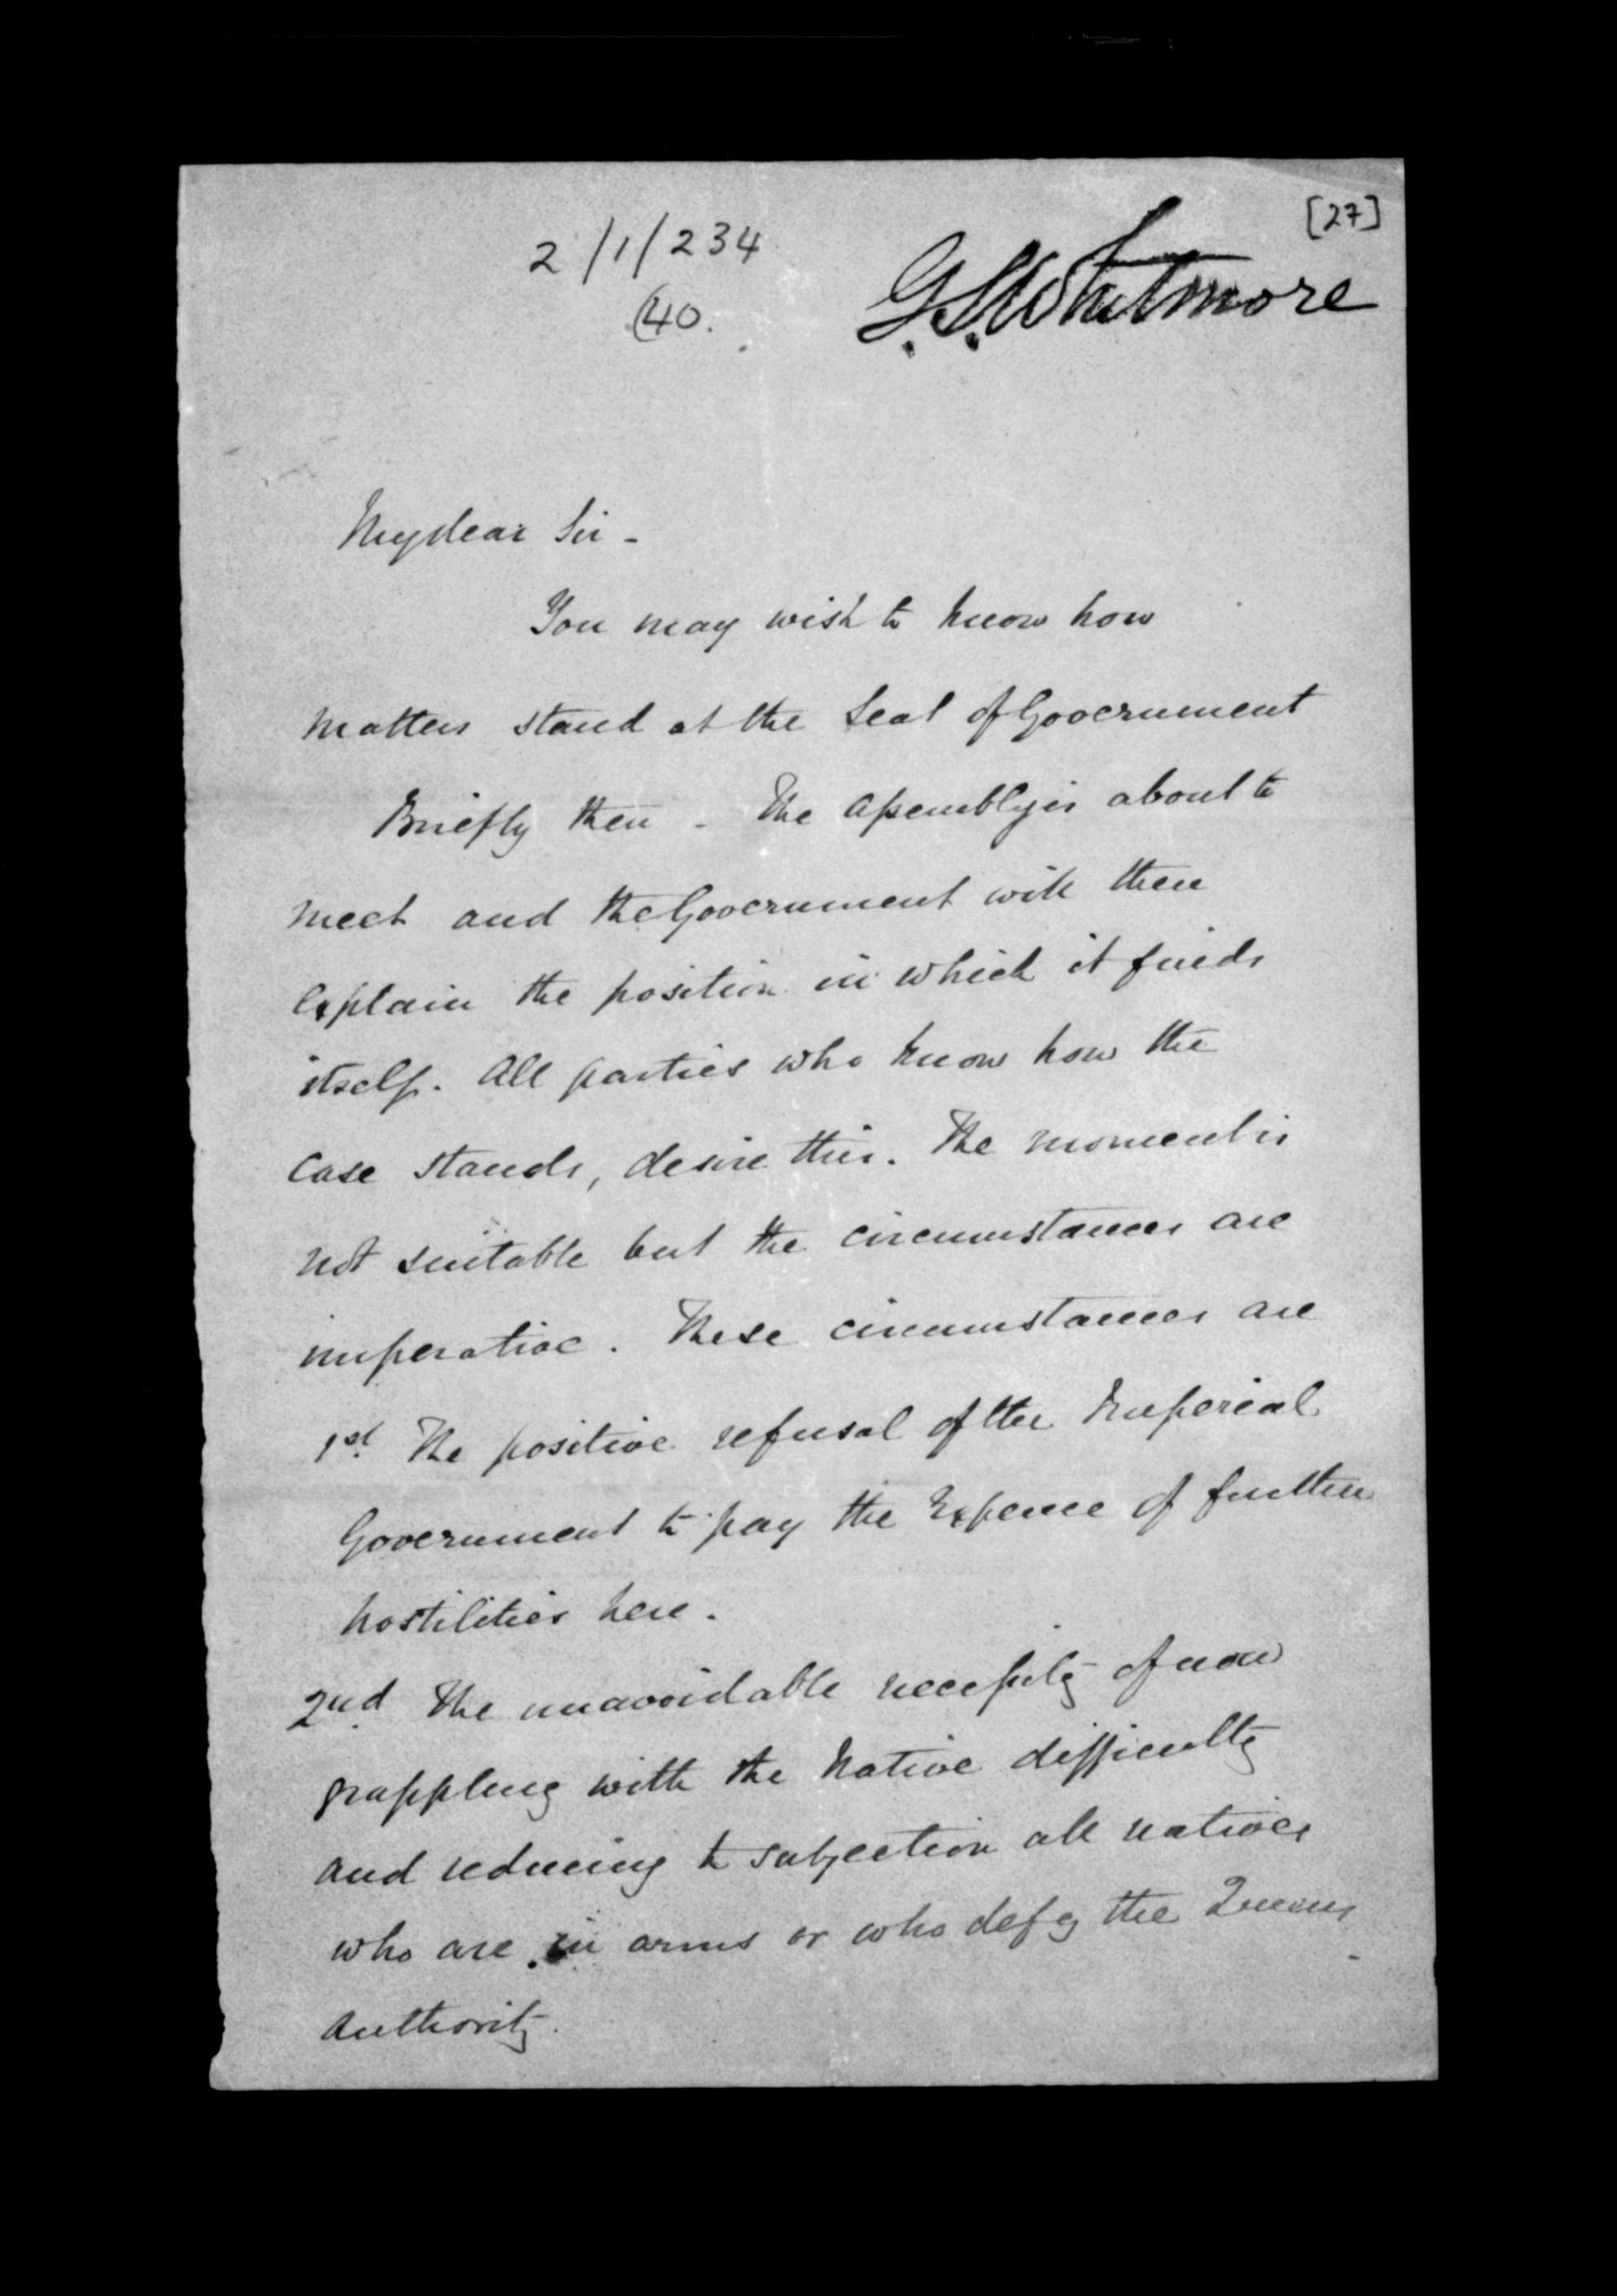 [27]
2/1/234
(40.
G.S. Whitmore
My dear Sir -
You may wish to know how
matters stand at the Seat of Government
Briefly then - The Assembly is about to
meet and the Government will then
explain the position in which it finds
itself. All parties who know how the
case stands, desire this. The moment is
not suitable but the circumstances are
imperative. These circumstances are
1st. The positive refusal of the Imperial
Government to pay the Expence of further
hostilities here.
2nd. The unavoidable necessity of now
grappling with the Native difficulty
and reducing to subjection all natives
who are in arms or who defy the Queens
Authority.